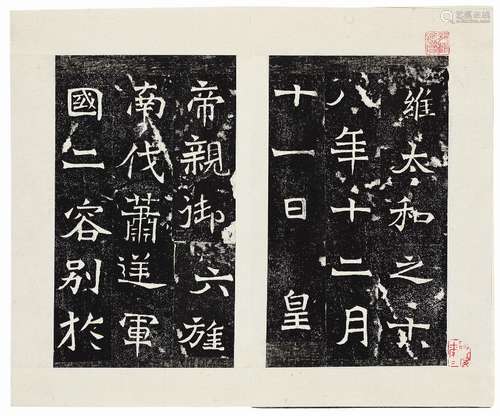 維太和之十
八年十二月
十一日皇
帝親御六旌
南伐蕭逆軍
國二容別於